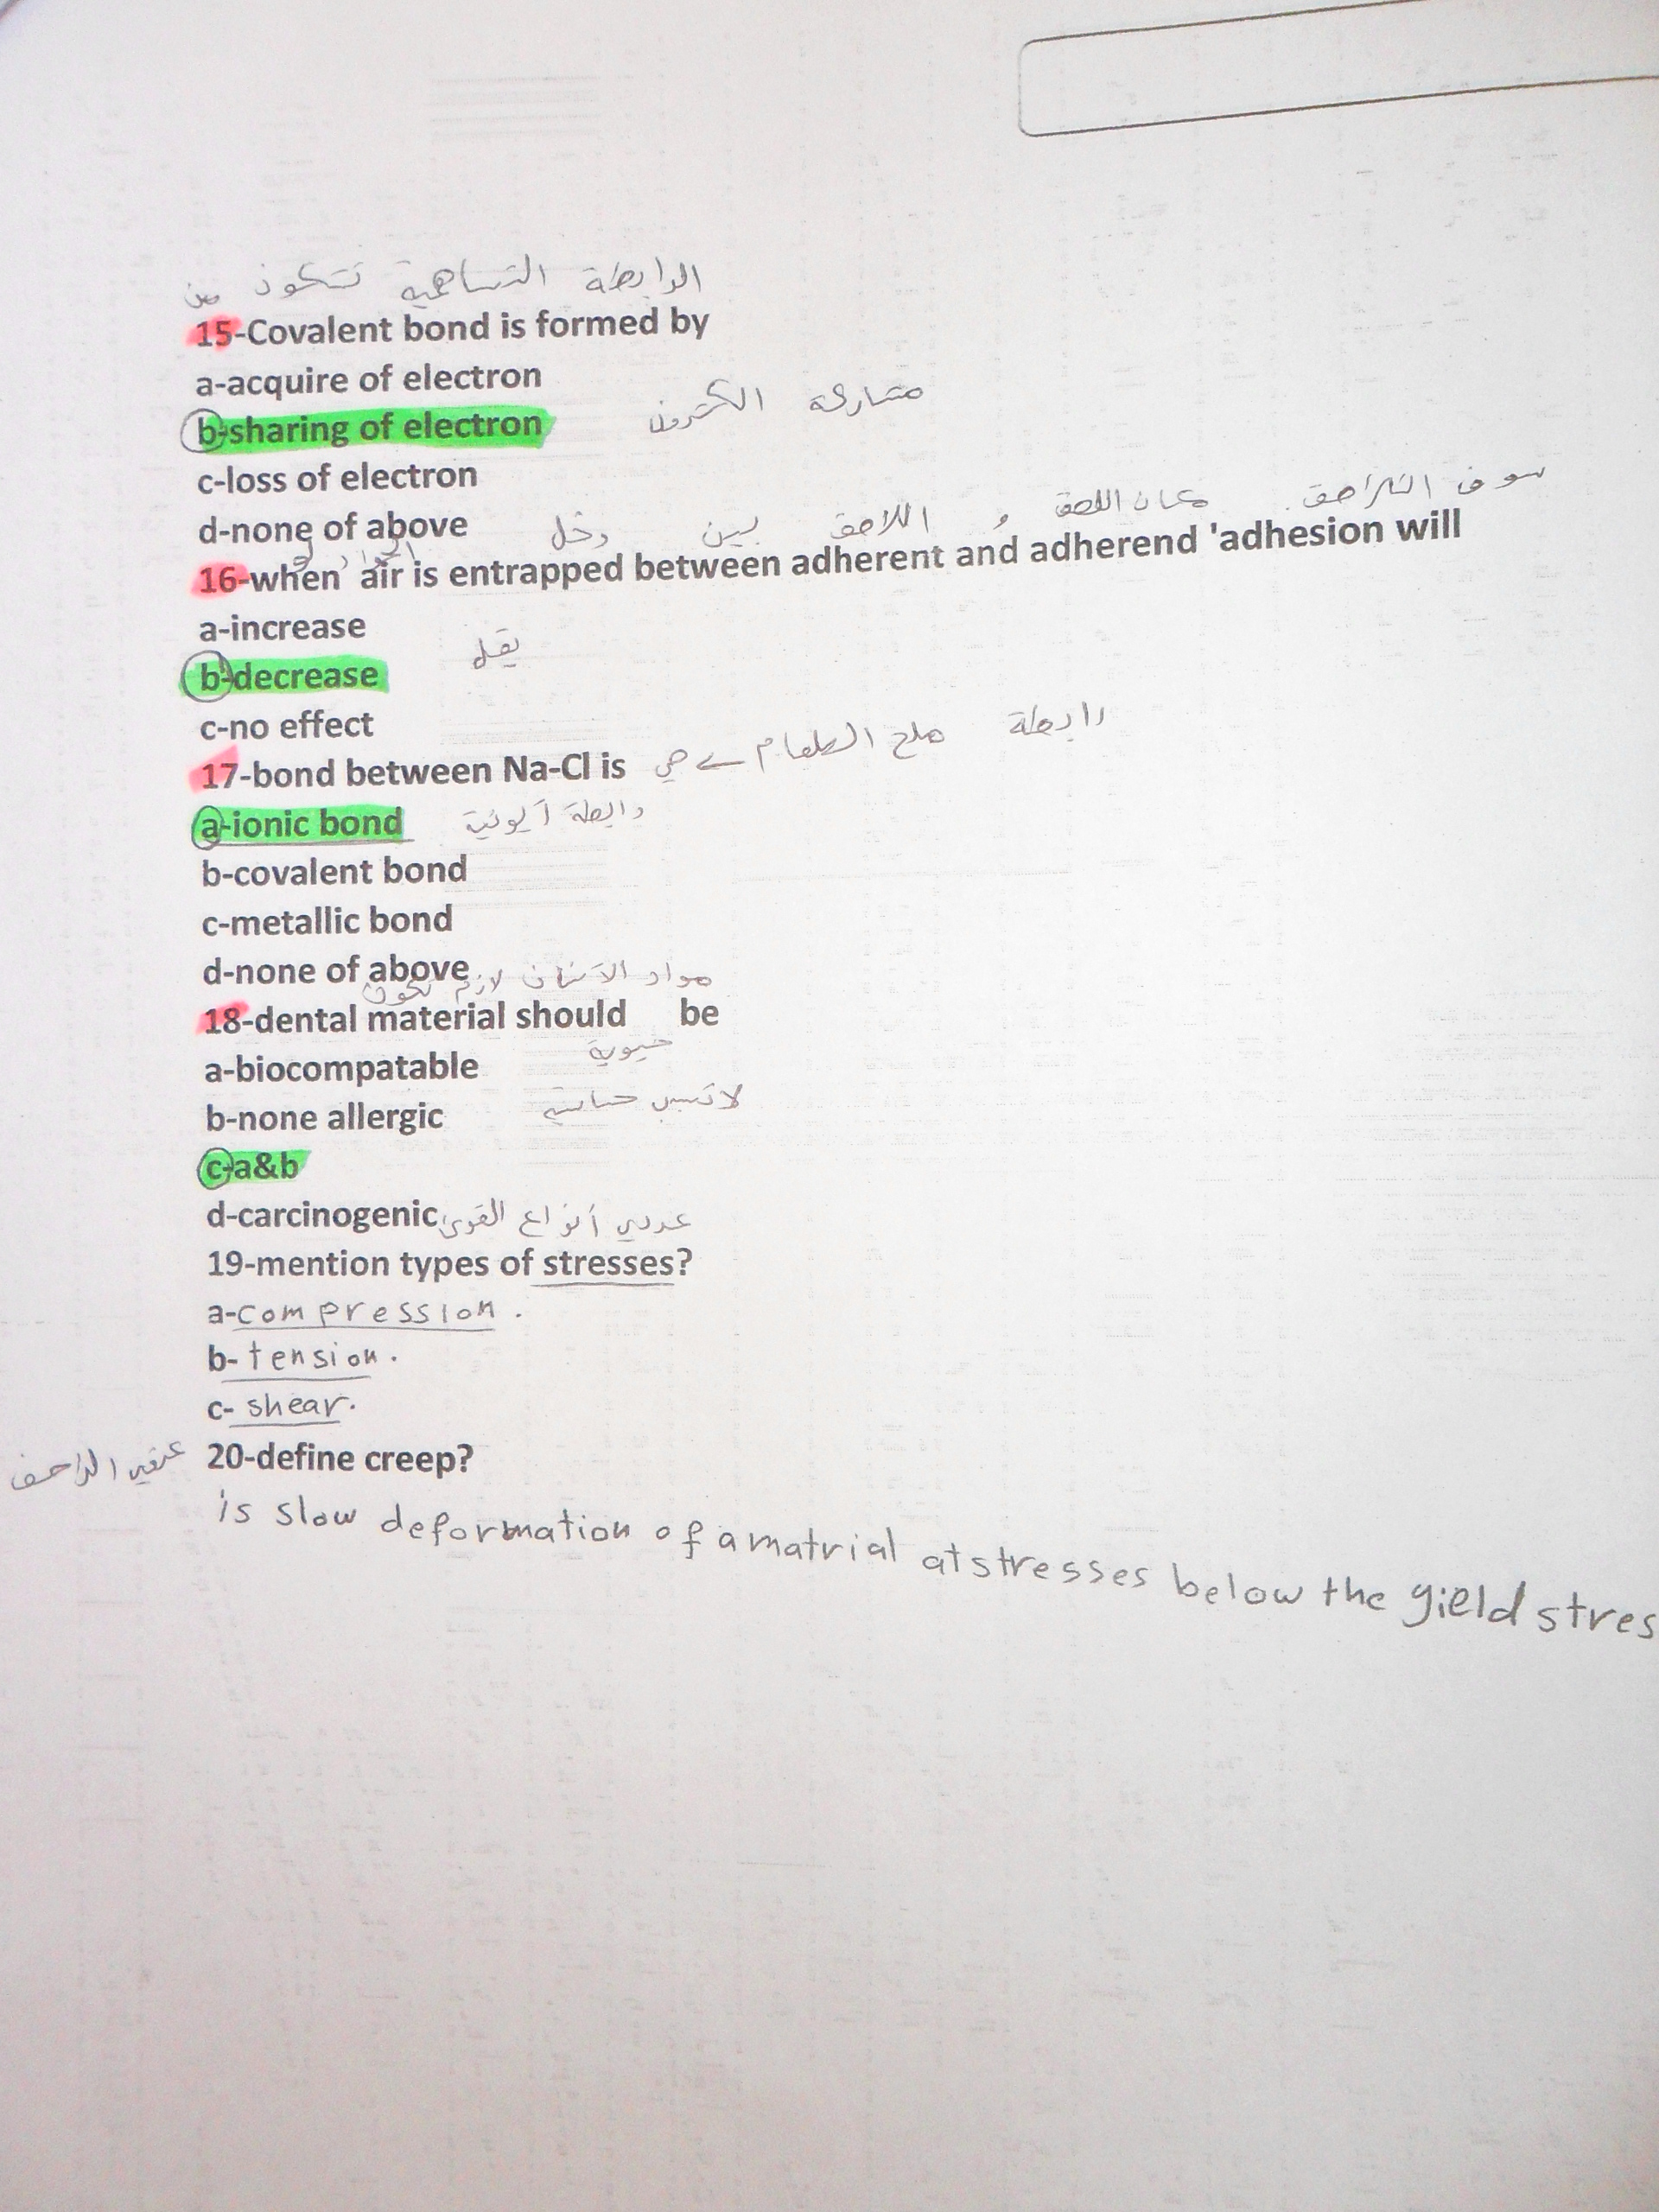 الرابطة التساهمية تتكون من
15-Covalent bond is formed by
a-acquire of electron
b-sharing of electron مشاركة الكترون
c-loss of electron
d-none of above
دخل بين اللاصق و مكان اللصق سوف التلاصق
16-when air is entrapped between adherent and adherend 'adhesion will
a-increase
b-decrease يقل
c-no effect
17-bond between Na-Cl is رابطة ملح الطعام هي
a-ionic bond رابطة أيونية
b-covalent bond
c-metallic bond
d-none of above
مواد الأسنان لازم تكون
18-dental material should be
a-biocompatable حيوية
b-none allergic لا تسبب حساسية
c-a&b
d-carcinogenic
عددي أنواع القوى
19-mention types of stresses?
a-compression.
b-tension.
c-shear.
20-define creep?
is slow deformation of a matrial at stresses below the yield stres